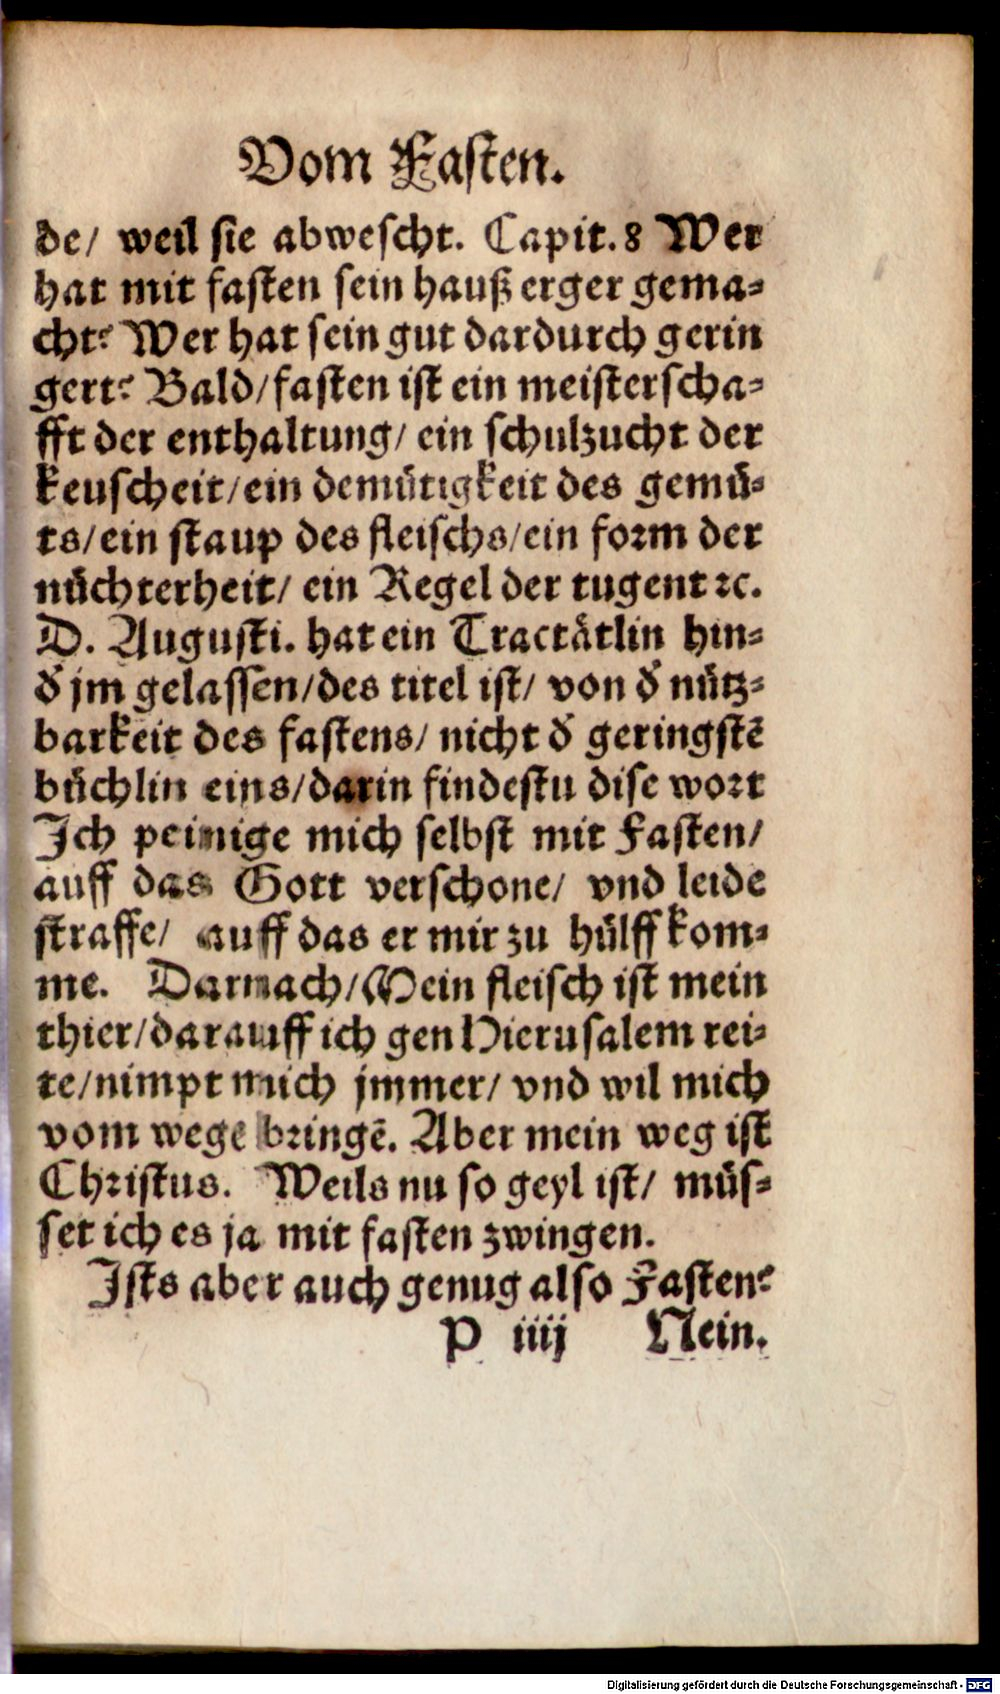 Vom Fasten.
de/ weil sie abwescht. Capit. 8 Wer
hat mit fasten sein hauß erger gema⸗
cht? Wer hat sein gut dardurch gerin
gert? Bald/fasten ist ein meisterscha⸗
fft der enthaltung/ ein schulzucht der
keuscheit/ein demütigkeit des gemü⸗
ts/ein staup des fleischs/ein form der
nüchterheit/ ein Regel der tugent ꝛc.
D. Augusti. hat ein Tractätlin hin⸗
d̕ jm gelassen/des titel ist/ von d̕ nütz⸗
barkeit des fastens/ nicht d̕ geringstē
büchlin eins/darin findestu dise wort
Ich peinige mich selbst mit Fasten/
auff das Gott verschone/ vnd leide
straffe/ auff das er mir zu hülff kom⸗
me. Darnach/Mein fleisch ist mein
thier/darauff ich gen Hierusalem rei⸗
te/nimpt mich jmmer/ vnd wil mich
vom wege bringē. Aber mein weg ist
Christus. Weils nu so geyl ist/ müs⸗
set ich es ja mit fasten zwingen.
Ists aber auch genug also Fasten?
P iiij Nein.
Digitalisierung gefördert durch die Deutsche Forschungsgemeinschaft - DFG